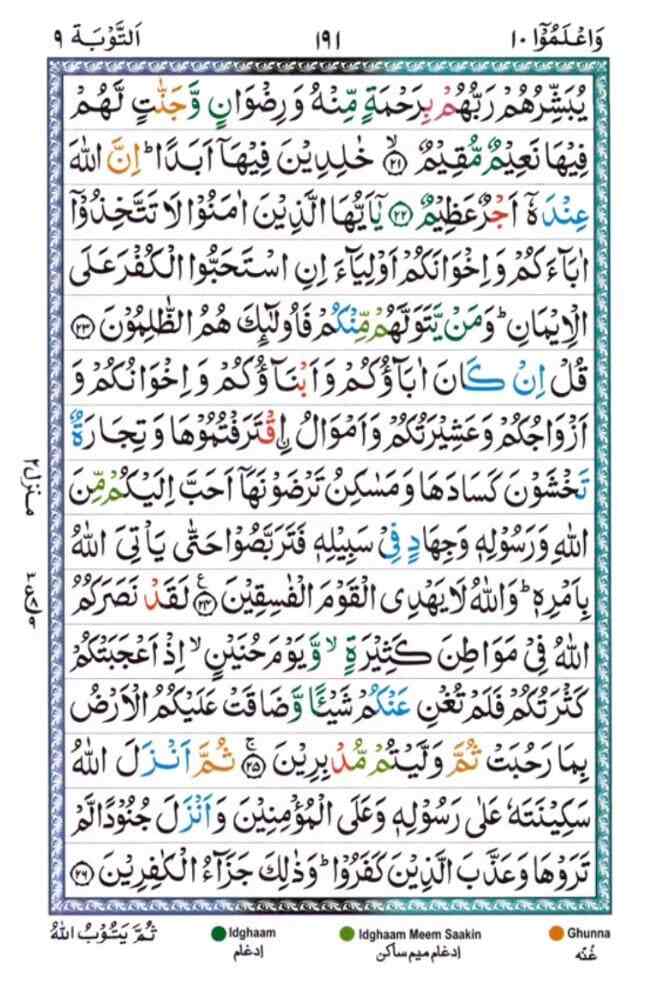 وَاعْلَمُوْۤا ١٠
١٩١
اَلتَّوْبَة ٩
يُبَشِّرُهُمْ رَبُّهُمْ بِرَحْمَةٍ مِّنْهُ وَرِضْوَانٍ وَّجَنّٰتٍ لَّهُمْ
فِيْهَا نَعِيْمٌ مُّقِيْمٌ ۙ﴿۲۱﴾ خٰلِدِيْنَ فِيْهَاۤ اَبَدًا ؕ اِنَّ اللّٰهَ
عِنْدَهٗۤ اَجْرٌ عَظِيْمٌ ﴿۲۲﴾ يٰۤاَيُّهَا الَّذِيْنَ اٰمَنُوْا لَا تَتَّخِذُوْۤا
اٰبَآءَكُمْ وَاِخْوَانَكُمْ اَوْلِيَآءَ اِنِ اسْتَحَبُّوا الْكُفْرَ عَلَى
الْاِيْمَانِ ؕ وَمَنْ يَّتَوَلَّهُمْ مِّنْكُمْ فَاُولٰٓئِكَ هُمُ الظّٰلِمُوْنَ ﴿۲۳﴾
قُلْ اِنْ كَانَ اٰبَآؤُكُمْ وَاَبْنَآؤُكُمْ وَاِخْوَانُكُمْ وَ
اَزْوَاجُكُمْ وَعَشِيْرَتُكُمْ وَاَمْوَالُ اۨقْتَرَفْتُمُوْهَا وَتِجَارَةٌ
تَخْشَوْنَ كَسَادَهَا وَمَسٰكِنُ تَرْضَوْنَهَاۤ اَحَبَّ اِلَيْكُمْ مِّنَ
اللّٰهِ وَرَسُوْلِهٖ وَجِهَادٍ فِيْ سَبِيْلِهٖ فَتَرَبَّصُوْا حَتّٰى يَاْتِيَ اللّٰهُ
بِاَمْرِهٖ ؕ وَاللّٰهُ لَا يَهْدِى الْقَوْمَ الْفٰسِقِيْنَ ﴿۲۴﴾ع لَقَدْ نَصَرَكُمُ
اللّٰهُ فِيْ مَوَاطِنَ كَثِيْرَةٍ ۙ وَّيَوْمَ حُنَيْنٍ ۙ اِذْ اَعْجَبَتْكُمْ
كَثْرَتُكُمْ فَلَمْ تُغْنِ عَنْكُمْ شَيْـًٔا وَّضَاقَتْ عَلَيْكُمُ الْاَرْضُ
بِمَا رَحُبَتْ ثُمَّ وَلَّيْتُمْ مُّدْبِرِيْنَ ۚ﴿۲۵﴾ ثُمَّ اَنْزَلَ اللّٰهُ
سَكِيْنَتَهٗ عَلٰى رَسُوْلِهٖ وَعَلَى الْمُؤْمِنِيْنَ وَاَنْزَلَ جُنُوْدًا لَّمْ
تَرَوْهَا وَعَذَّبَ الَّذِيْنَ كَفَرُوْا ؕ وَذٰلِكَ جَزَآءُ الْكٰفِرِيْنَ ﴿۲۶﴾
منزل ۲
ثُمَّ يَتُوْبُ اللّٰهُ
Idghaam
ادغام
Idghaam Meem Saakin
ادغام میم ساکن
Ghunna
غُنّه